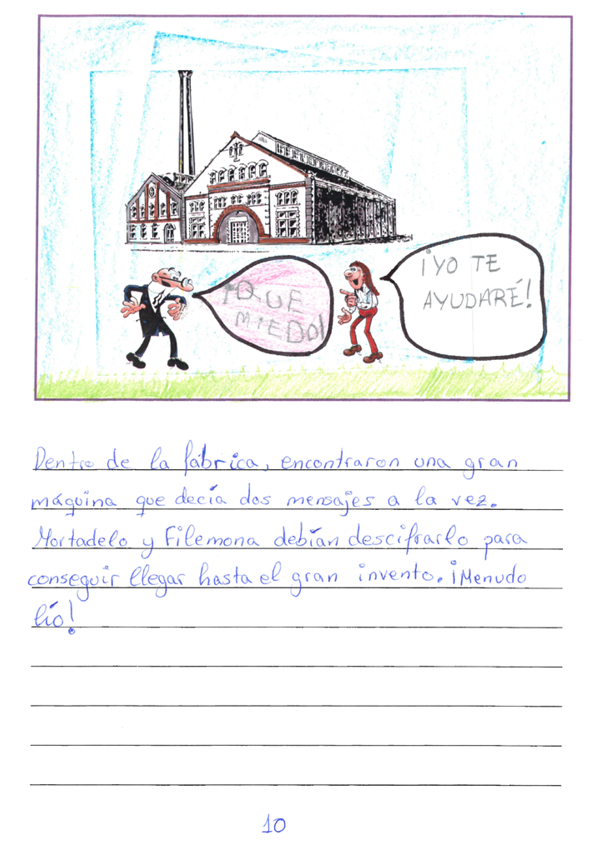 ¡QUE
MIEDO!
¡YO TE
AYUDARÉ!
Dentro de la fábrica, encontraron una gran
máquina que decía dos mensajes a la vez.
Mortadelo y Filemona debían descifrarlo para
conseguir llegar hasta el gran invento. ¡Menudo
lío!
10